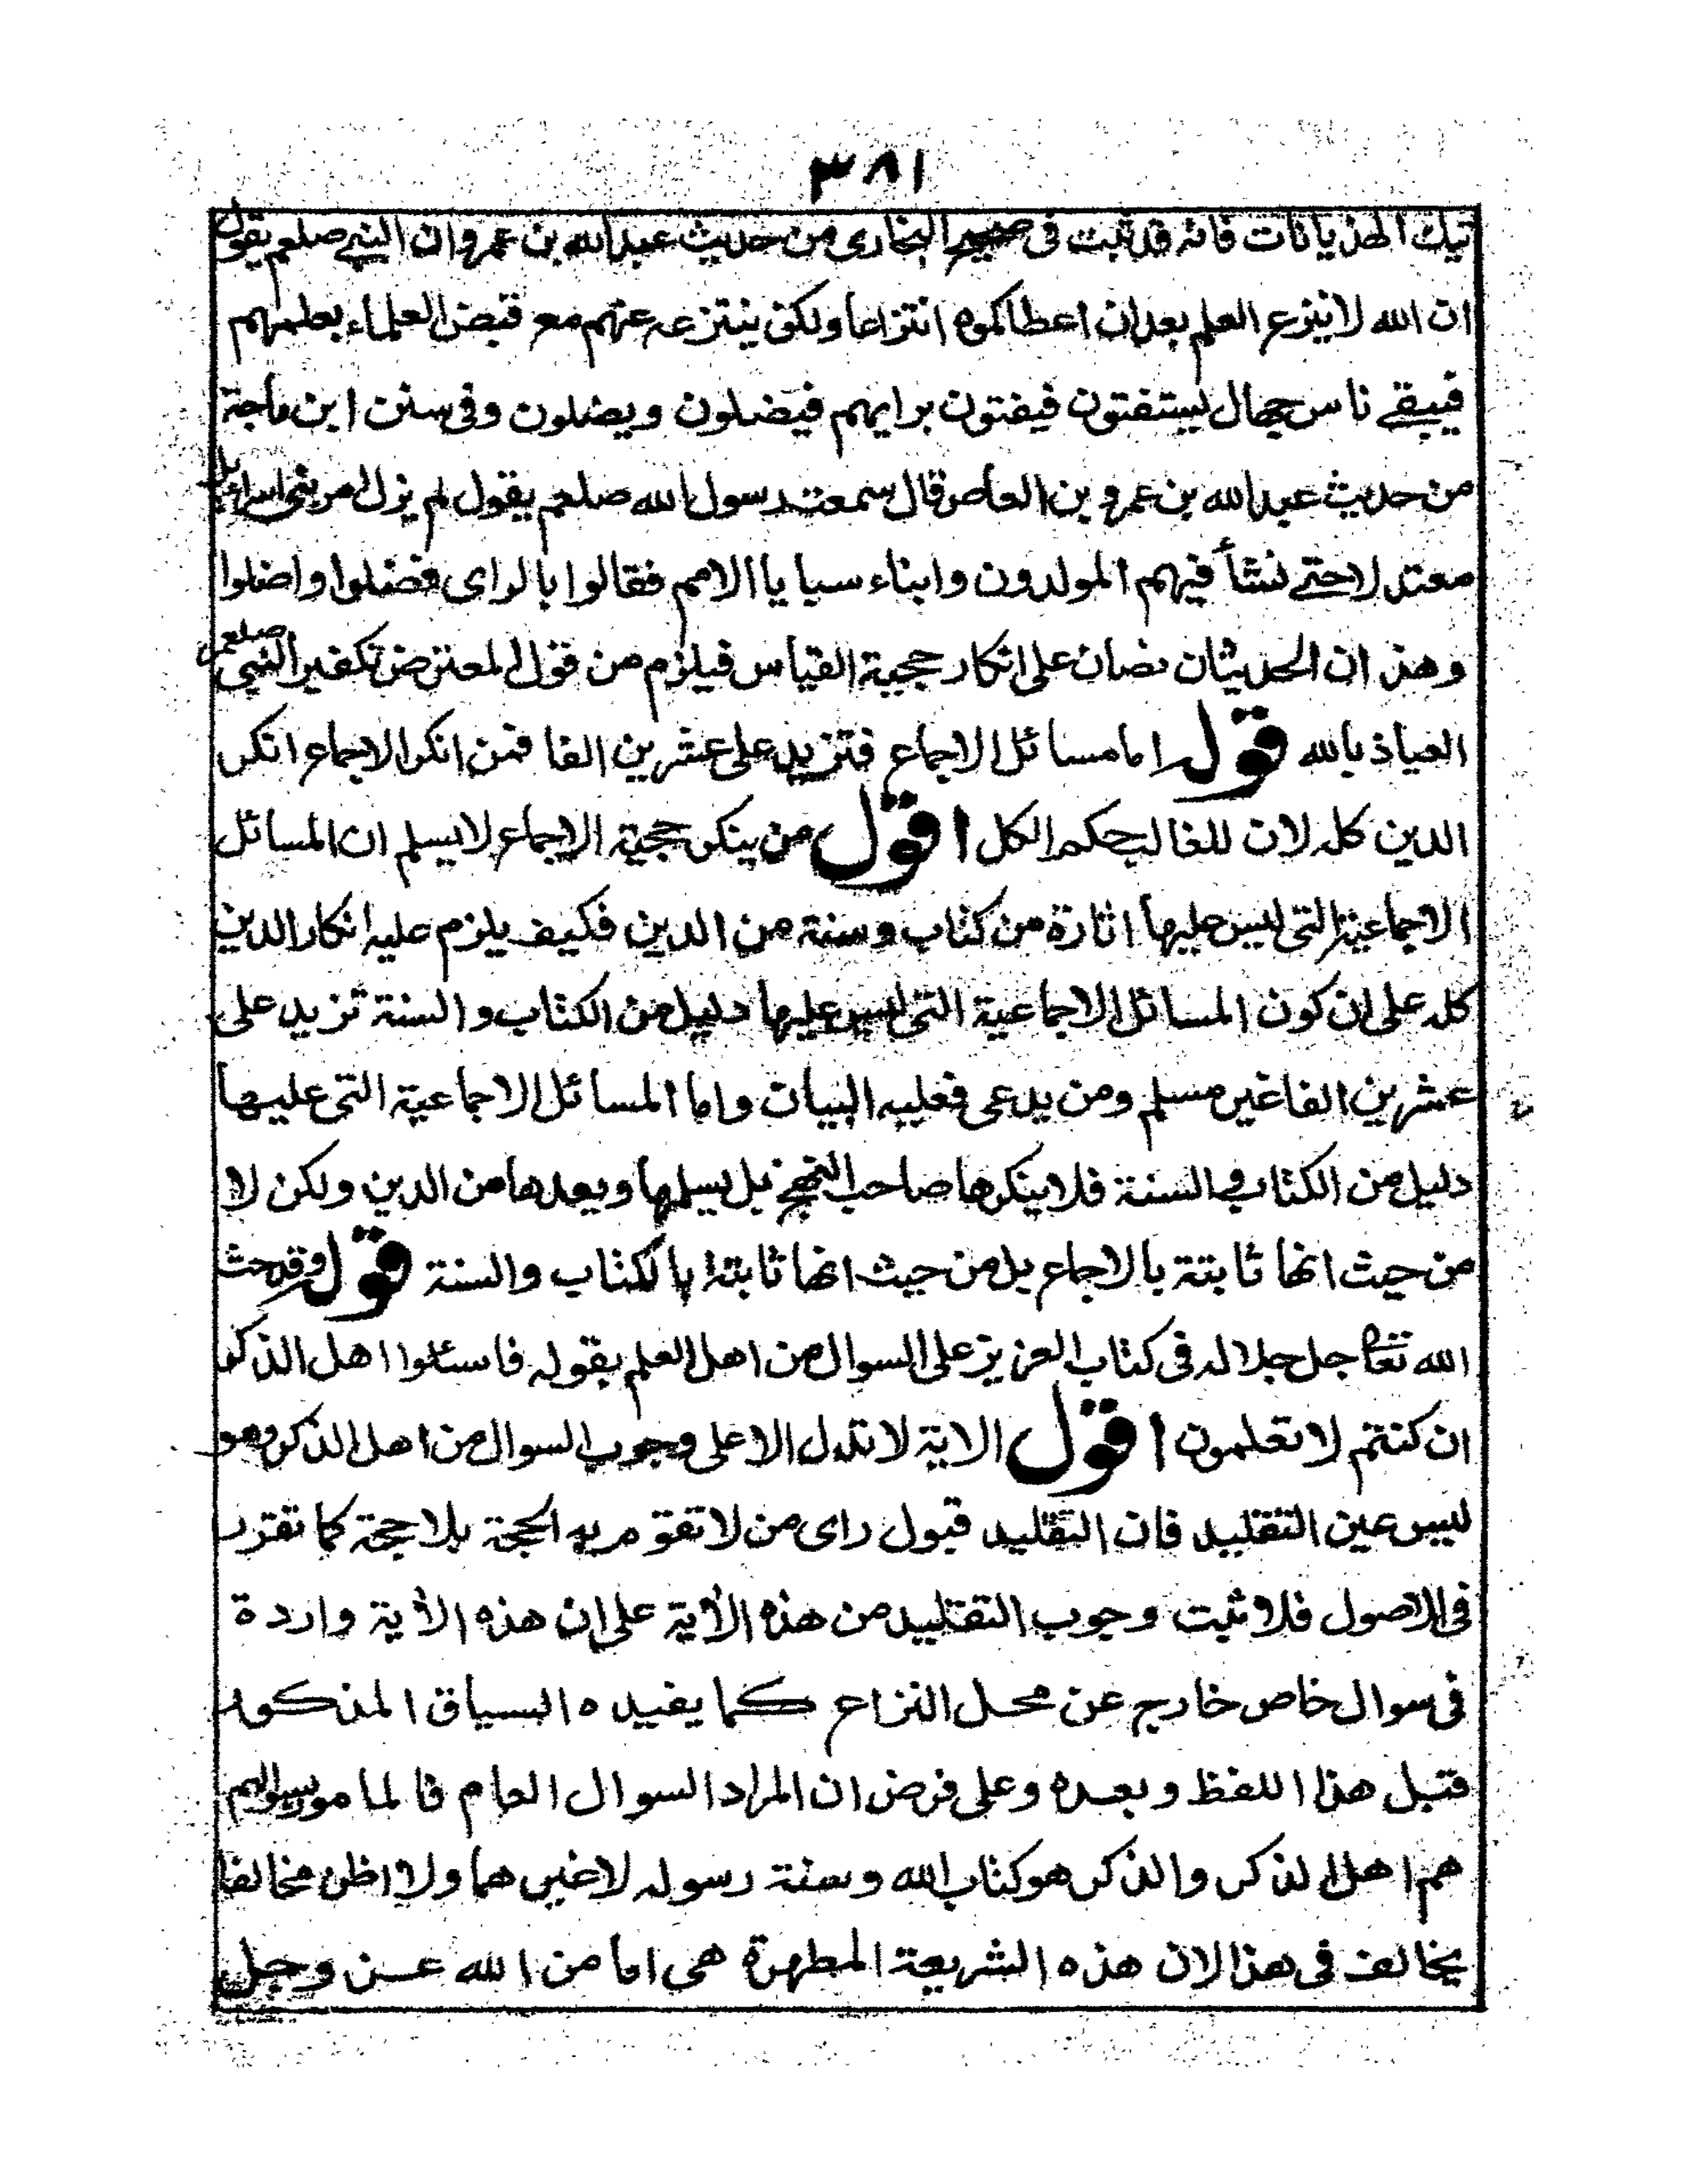 ٣٨١
تيك الهذيانات فانه قد ثبت فى صحيح البخارى من حديث عبد الله بن عمرو ان النبي صلعم يقول
ان الله لا ينزع العلم بعد ان اعطاكموه انتزاعا ولكن ينتزعه عنهم مع قبض العلماء بعلمهم
فيبقے ناس جهال يستفتون فيفتون برايهم فيضلون ويضلون وفى سنن ابن ماجة
من حديث عبد الله بن عمرو بن العاص قال سمعت رسول الله صلعم يقول لم يزل امر بنى اسرائيل
معتدلا حتے نشأ فيهم المولدون وابناء سبايا الامم فقالوا بالراى فضلوا واضلوا
وهذان الحديثان نصان على انكار حجية القياس فيلزم من قول المعترض تكفير النبي صلعم
العياذ بالله قول اما مسائل الاجماع فتزيد على عشرين الفا فمن انكر الاجماع انكر
الدين كله لان للغالب حكم الكل اقول من ينكر حجية الاجماع لا يسلم ان المسائل
الاجماعية التى ليس عليها اثارة من كتاب وسنة من الدين فكيف يلزم عليه انكار الدين
كله على ان كون المسائل الاجماعية التى ليس عليها دليل من الكتاب والسنة تزيد على
عشرين الفا غير مسلم ومن يدعى فعليه البيان واما المسائل الاجماعية التى عليها
دليل من الكتاب والسنة فلا ينكرها صاحب النهج بل يسلمها ويعدها من الدين ولكن لا
من حيث انها ثابتة بالاجماع بل من حيث انها ثابتة بالكتاب والسنة قول وقد حث
الله تعا جل جلاله فى كتاب العزيز على السوال من اهل العلم بقوله فاسئلوا اهل الذكر
ان كنتم لا تعلمون اقول الاية لا تدل الا على وجوب السوال من اهل الذكر وهو
ليس عين التقليد فان التقليد قبول راى من لا تقوم به الحجة بلا حجة كما تقرر
فى الاصول فلا ثبت وجوب التقليد من هذه الأية على ان هذه الأية واردة
فى سوال خاص خارج عن محل النزاع كما يفيده السياق المذكور
قبل هذا اللفظ وبعده وعلى فرض ان المراد السوال العام فالمامور بسوالهم
هم اهل الذكر والذكر هو كتاب الله وسنة رسوله لا غيرهما ولا اظن مخالفا
يخالف فى هذا لان هذه الشريعة المطهرة هى اما من الله عز وجل